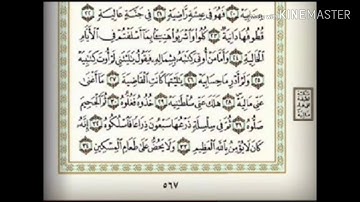 KINEMASTER
حِسَابِيَهْ ٢٠ فَهُوَ فِى عِيشَةٍ رَّاضِيَةٍ ٢١ فِى جَنَّةٍ عَالِيَةٍ
قُطُوفُهَا دَانِيَةٌ ٢٣ كُلُوا۟ وَٱشْرَبُوا۟ هَنِيٓـًٔۢا بِمَآ أَسْلَفْتُمْ فِى ٱلْأَيَّامِ
ٱلْخَالِيَةِ ٢٤ وَأَمَّا مَنْ أُوتِىَ كِتَٰبَهُۥ بِشِمَالِهِۦ فَيَقُولُ يَٰلَيْتَنِى لَمْ أُوتَ كِتَٰبِيَهْ
٢٥ وَلَمْ أَدْرِ مَا حِسَابِيَهْ ٢٦ يَٰلَيْتَهَا كَانَتِ ٱلْقَاضِيَةَ ٢٧ مَآ أَغْنَىٰ
عَنِّى مَالِيَهْ ٢٨ هَلَكَ عَنِّى سُلْطَٰنِيَهْ ٢٩ خُذُوهُ فَغُلُّوهُ ٣٠ ثُمَّ ٱلْجَحِيمَ
صَلُّوهُ ٣١ ثُمَّ فِى سِلْسِلَةٍ ذَرْعُهَا سَبْعُونَ ذِرَاعًا فَٱسْلُكُوهُ ٣٢ إِنَّهُۥ
كَانَ لَا يُؤْمِنُ بِٱللَّهِ ٱلْعَظِيمِ ٣٣ وَلَا يَحُضُّ عَلَىٰ طَعَامِ ٱلْمِسْكِينِ ٣٤
٥٦٧